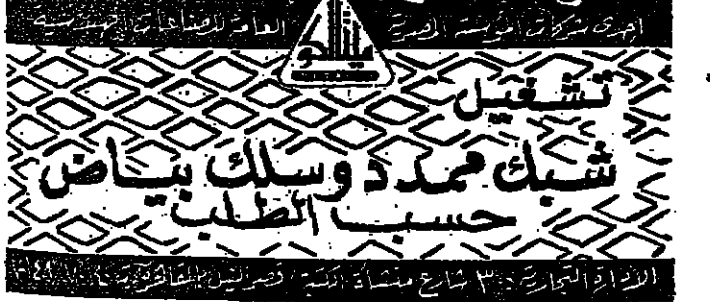 إحدى شركات المؤسسة المصرية العامة للصناعات الهندسية
تشغيل
شبك ممدد وسلك بياض
حسب الطلب
الإدارة التجارية : ٣ شارع منشأة الكتبة قصر النيل القاهرة ت